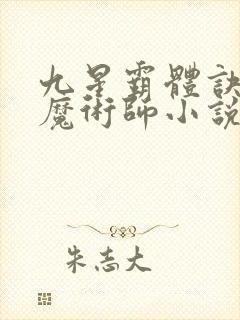 九星霸體訣
魔術師小說
朱志大